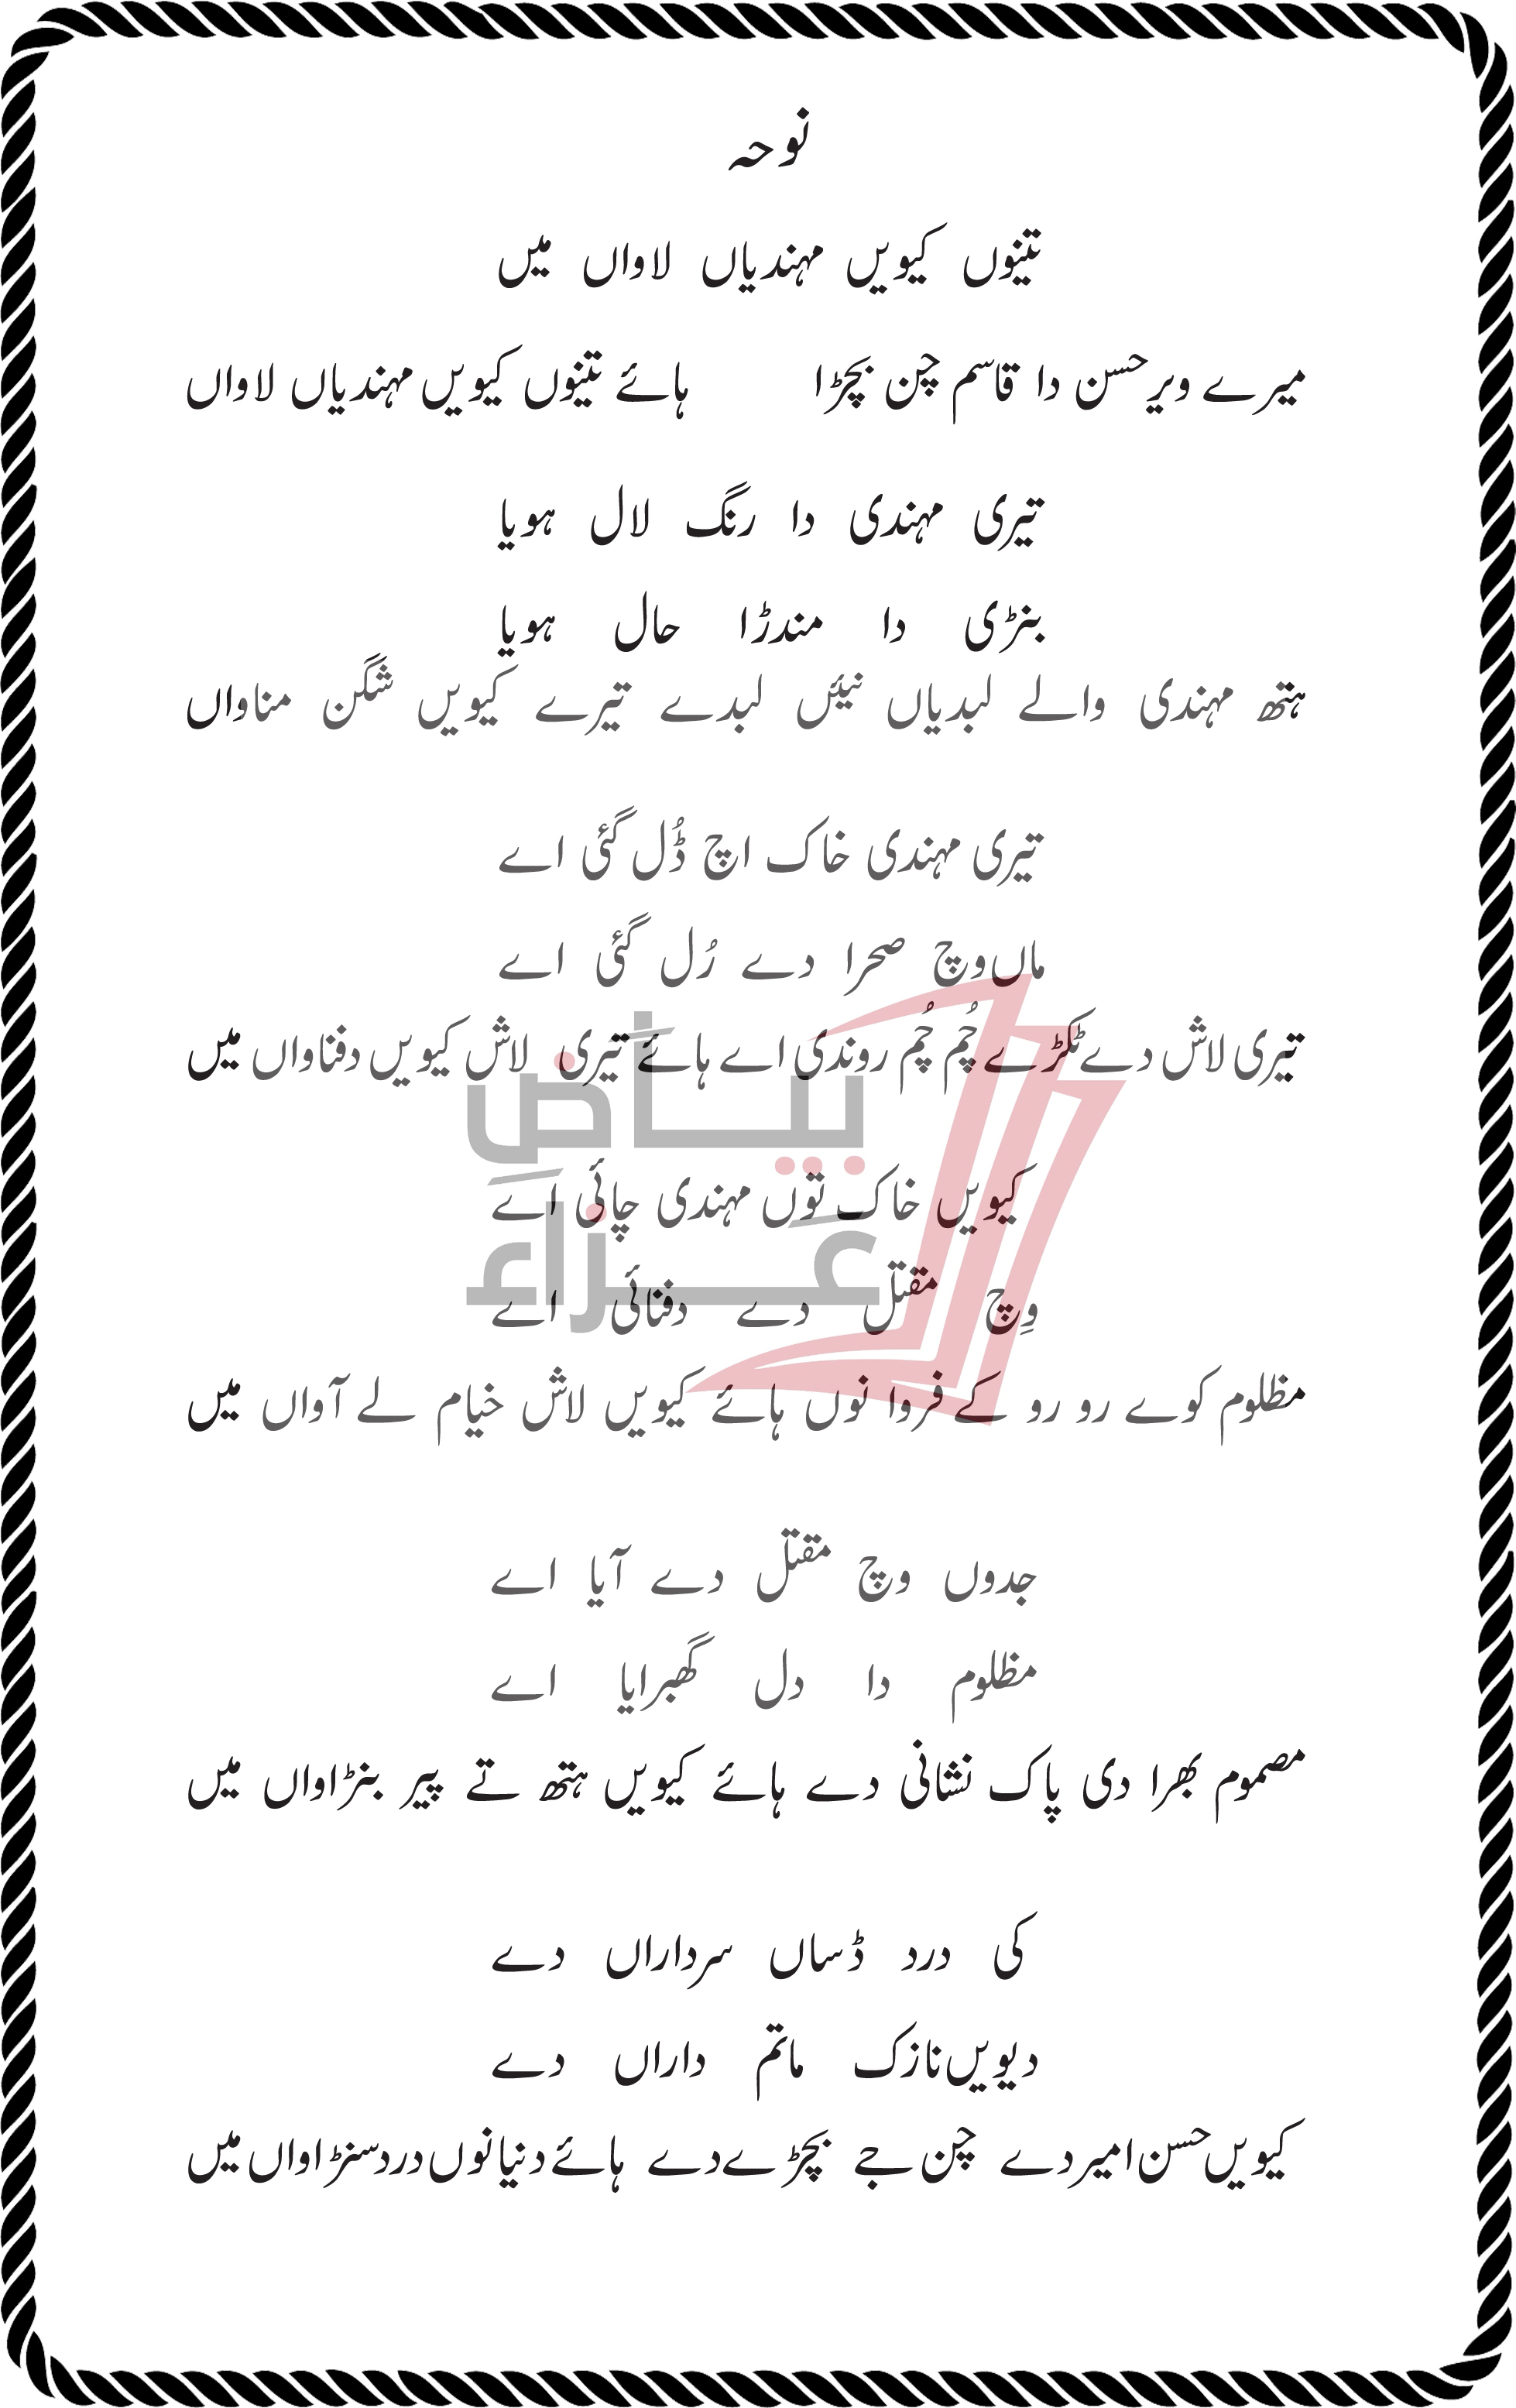 نوحہ
تینوں کیویں مہندیاں لاواں میں
میرے ویر حسن دا قاسم چن بچڑا ہائے تینوں کیویں مہندیاں لاواں
تیری مہندی دا رنگ لال ہویا
بنڑی دا مندڑا حال ہویا
ہتھ مہندی والے لبدیاں نئیں لبدے تیرے کیویں شگن مناواں
تیری مہندی خاک اچ ڈُل گئی اے
ماں وچ صحرا دے رُل گئی اے
تیری لاش دے ٹکڑے چُم چُم روندی اے ہائے تیری لاش کیویں دفناواں میں
کیویں خاک توں مہندی چائی اے
وِچ مقتل دے دفنائی اے
مظلوم کوے رو رو کے فروا نوں ہائے کیویں لاش خیام لے آواں میں
بیاض
عزاء
جدوں وچ مقتل دے آیا اے
مظلوم دا دل گھبرایا اے
مصموم بھرا دی پاک نشانی دے ہائے کیویں ہتھ تے پیر بنڑاواں میں
کی درد ڈساں سرداراں دے
دیویں نازک ماتم داراں دے
کیویں حسن امیر دے چن جے بچڑے دے ہائے دنیا نوں درد سنڑاواں میں